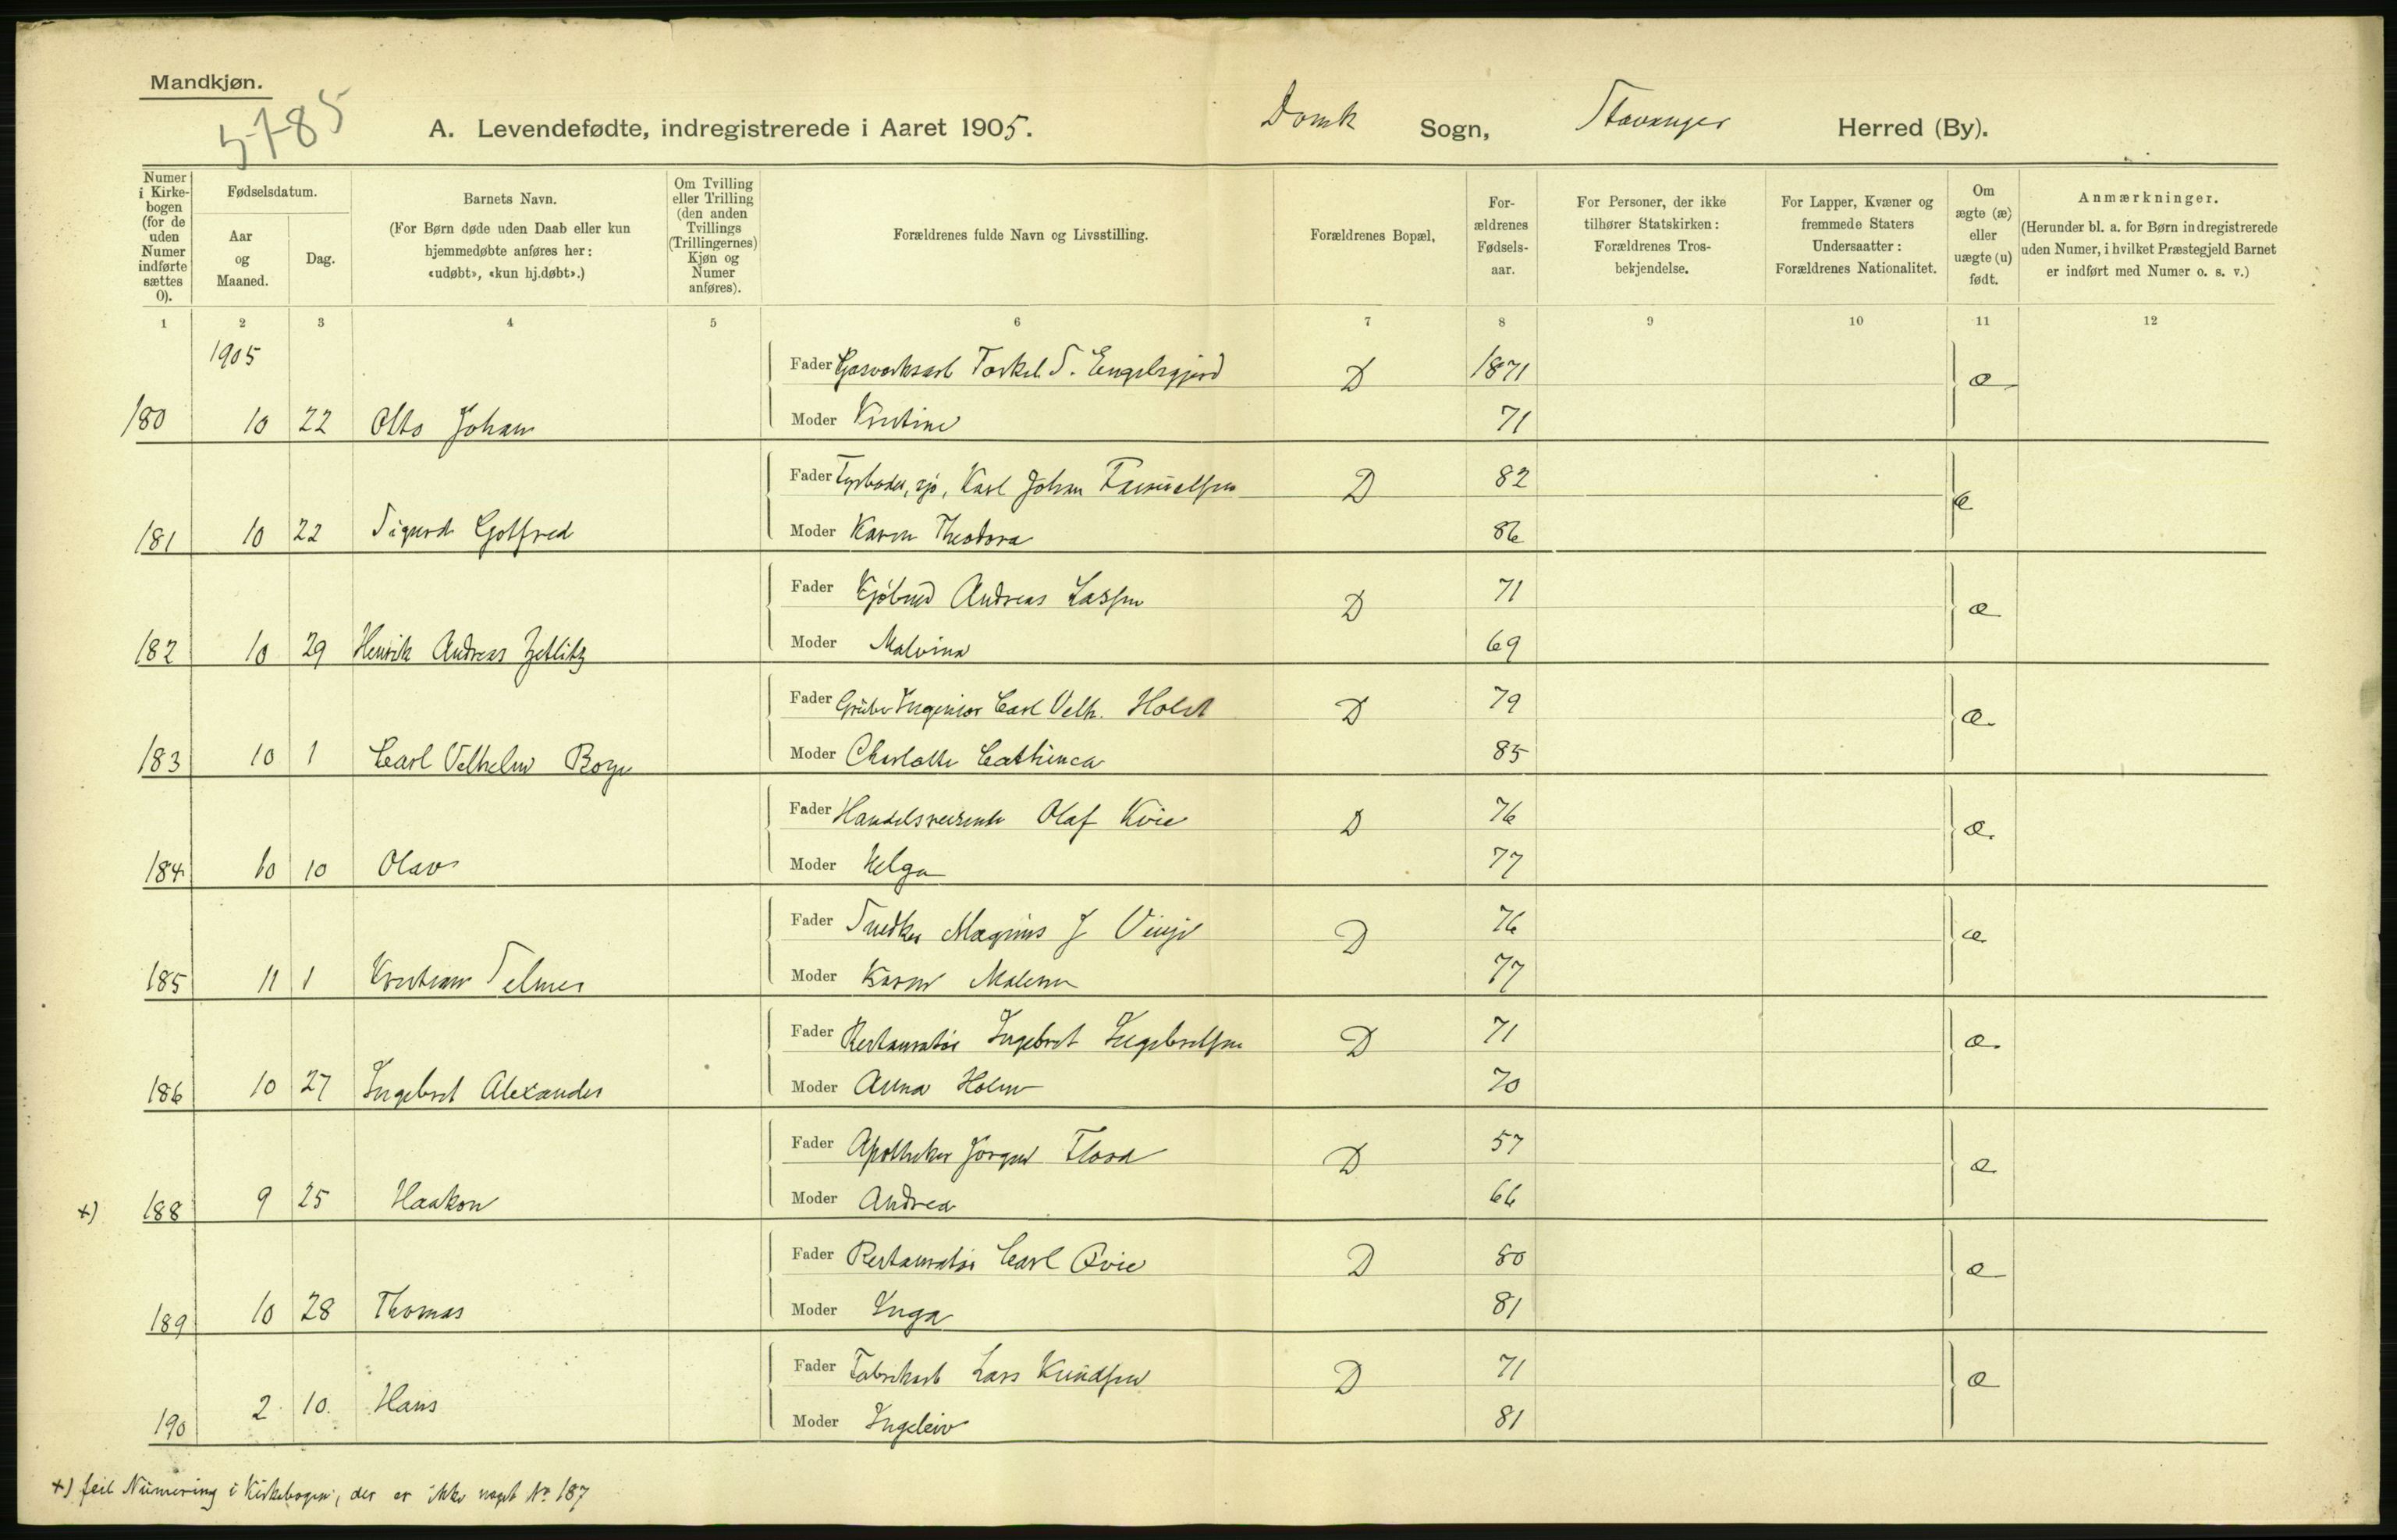 Mandkjøn.
5785
A. Levendefødte, indregistrerede i Aaret 1905. Domk Sogn, Stavanger Herred (By).
Numer i Kirkebogen (for de uden Numer indførte sættes 0).
Fødselsdatum.
Aar og Maaned.
Dag.
Barnets Navn.
(For Børn døde uden Daab eller kun hjemmedøbte anføres her: «udøbt», «kun hj.døbt».)
Om Tvilling eller Trilling (den anden Tvillings (Trillingernes) Kjøn og Numer anføres).
Forældrenes fulde Navn og Livsstilling.
Forældrenes Bopæl,
Forældrenes Fødselsaar.
For Personer, der ikke tilhører Statskirken: Forældrenes Trosbekjendelse.
For Lapper, Kvæner og fremmede Staters Undersaatter: Forældrenes Nationalitet.
Om ægte (æ) eller uægte (u) født.
Anmærkninger.
(Herunder bl. a. for Børn indregistrerede uden Numer, i hvilket Præstegjeld Barnet er indført med Numer o. s. v.)
1 2 3 4 5 6 7 8 9 10 11 12
1905
Fader Gasverksarb Torkel S. Engelsgjerd D 1871 æ
180 10 22 Otto Johan Moder Kristine 71
Fader Fyrbøder, sjø, Karl Johan D 82 æ
181 10 22 Sigurd Gotfred Moder Karen Theodora 86
Fader Kjøbmd Andreas Lassen D 71 æ
182 10 29 Henrik Andreas Zetlitz Moder Malvina 69
Fader Grube Ingeniør Carl Vilh. Holst D 79 æ
183 10 1 Carl Vilhelm Borge Moder Charlotte Cathinca 85
Fader Handelsreisende Olaf Kvie D 76 æ
184 10 10 Olav Moder Helga 77
Fader Snedker Magnus J Vinje D 76 æ
185 11 1 Kristian Selmer Moder Karen Malene 77
Fader Restauratør Ingebret Ingebretsen D 71 æ
186 10 27 Ingebret Alexander Moder Anna Holm 70
Fader Apotheker Jørgen Flood D 57 æ
+) 188 9 25 Haakon Moder Andrea 66
Fader Restauratør Carl Qvie D 80 æ
189 10 28 Thomas Moder Inga 81
Fader Fabrikarb Lars Knudsen D 71 æ
190 2 10. Hans Moder Ingeleiv 81
+) feil Numering i Kirkebogen, der er ikke noget No 187